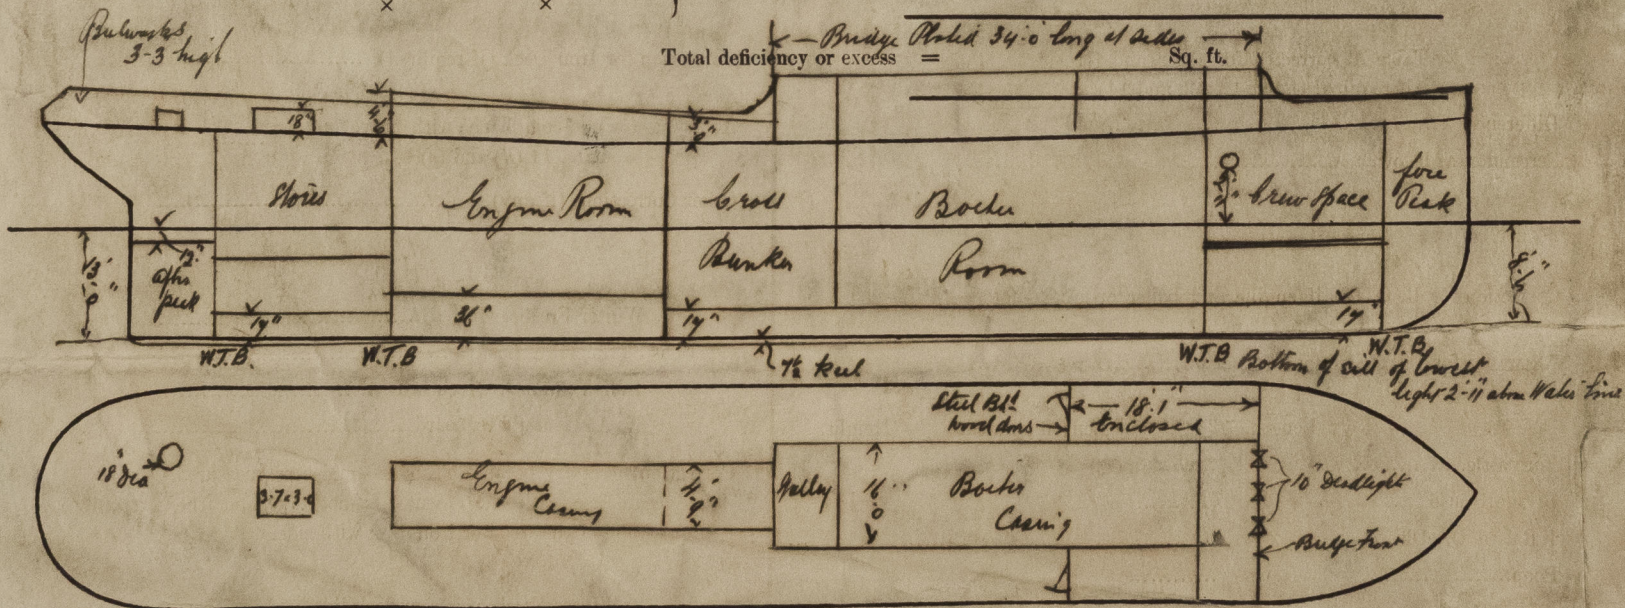 Bulwarks
3-3 high
Bridge Plated 34'-0 long at sides
Total deficiency or excess = Sq. ft.
18"
Stores
Engine Room
Cross
Bunker
Boiler
Room
Crew space
fore
Peak
12"
after
peak
13'-0"
17"
36"
17"
17"
W.T.B.
W.T.B
7½ keel
W.T.B
W.T.B.
Bottom of cill of lowest
light 2'-11 above Water line
Steel Bhd
wood doors
18'.1"
Enclosed
18" dia
3.7 x 3.0
Engine
Casing
4'-9"
Galley
16.0
Boiler
Casing
10" Deadlight
Bridge Front